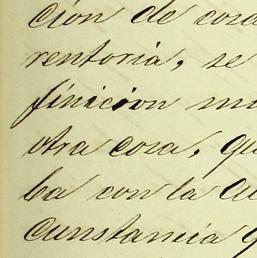 cion de cosa
rentoria, se
finicion
otra cosa, qu
ba con la
cunstancia q